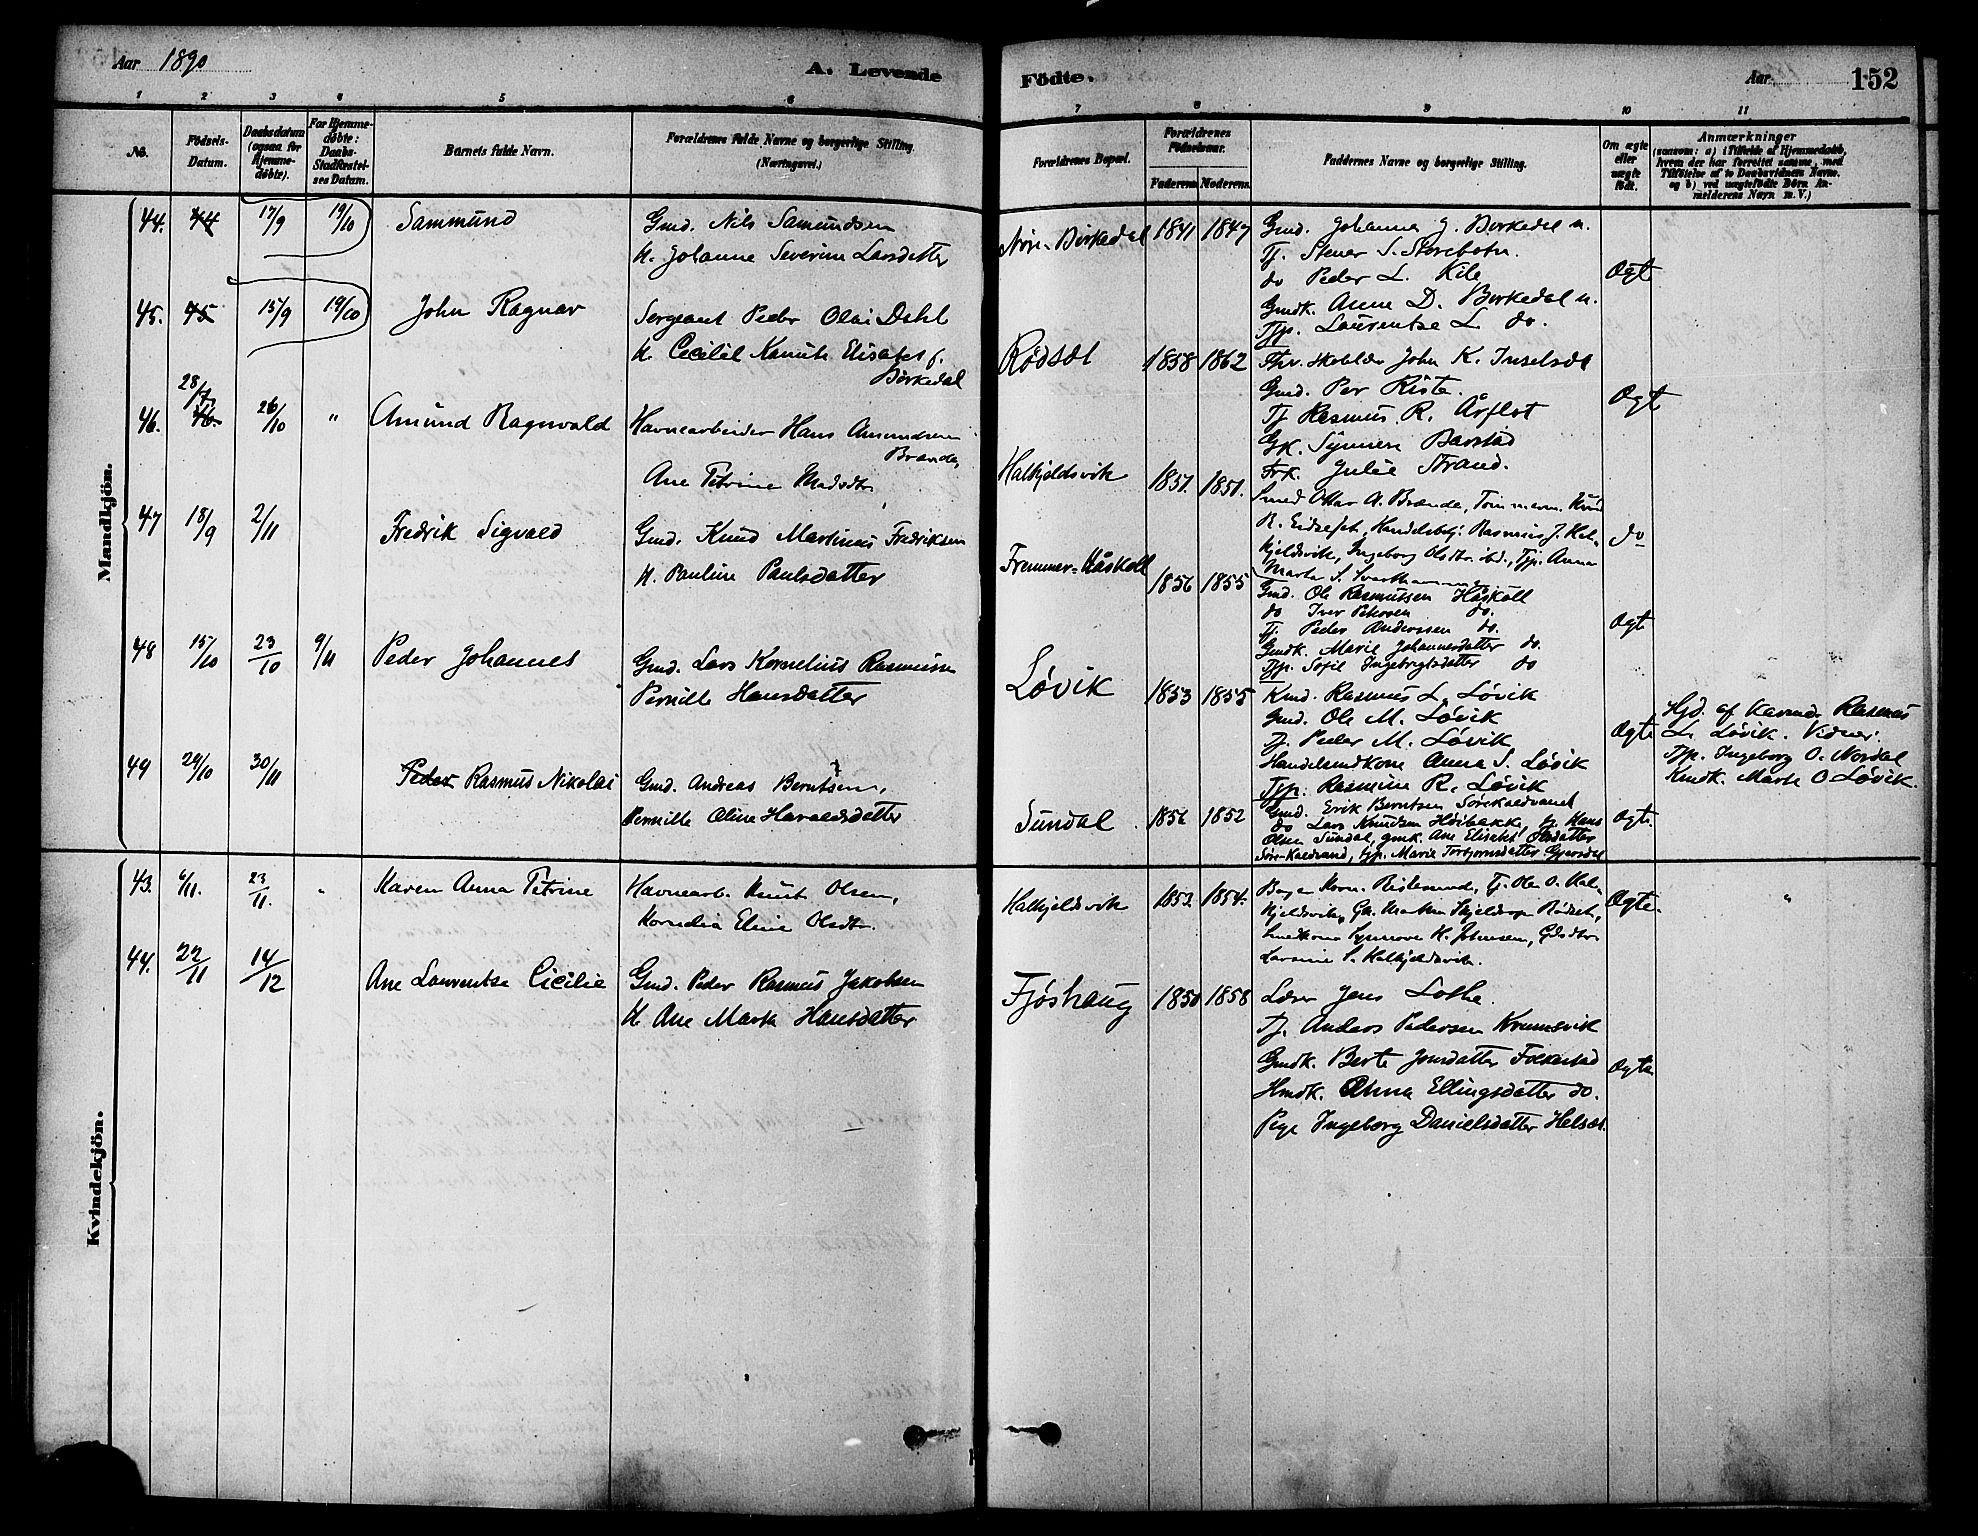 Aar 1890
A. Levende
Fødte.
Aar
152
1 2 3 4 5 6 7 8 9 10 11
No.
Fødsels-Datum.
Daabsdatum (ogsaa for Hjemmedøbte).
For Hjemmedøbte: Daabs-Stadfæstelses Datum.
Barnets fulde Navn.
Forældrenes fulde Navne og borgerlige Stilling. (Næringsvei.)
Forældrenes Bopæl.
Forældrenes Fødselsaar.
Faderens Moderens
Faddernes Navne og borgerlige Stilling.
Om ægte eller uægte født.
Anmærkninger
(saasom: a) i Tilfælde af Hjemmedaab, hvem der har forrettet samme, med Tilføielse af to Daabsvidners Navne. og b) ved uægtefødte Børn Anmelderens Navn m. V.)
Mandkjön.
44. 44 17/9 19/10 Sammund
Gmd. Nils Samundsen
H. Johanne Severine Larsdatter
Nore-Birkedal 1841 1847
Gmd. Johannes J. Birkedal n.
Tj. Stener S. Storebotn.
do Peder L. Kile
Gmdk. Anne D. Birkedal n.
Tjp. Laurentse L. do.
Ægte
45. 45 15/9 19/10 John Ragnar
Sergeant Peder Olai Dahl
H. Elisabet f. Birkedal
Rødsæt 1858 1862
John K.
Gmd. Per Riste.
Tj. Rasmus R. Årflot
Gk. Synneve Barstad
Frk. Julie Strand.
Ægte
46. 28/7 46. 26/10 " Amund Ragnvald
Havnearbeider Hans Amundsen
Brænde,
Ane Petrine Madsdtr.
Halkjeldsvik 1851. 1851.
Smed Ottar A. Brænde, Tømmerm. Knud
R. Eidseset, Handelsbetj. Rasmus J. Hal-
kjeldsvik, Ingeborg Olsdtr. ibd., Tjp. Anna
Marta S.
do
47 18/9 2/11 Fredrik Sigvald
Gmd. Knud Martinus Fredriksen
H. Pauline Paulsdatter
Fremmer-Håskoll 1856 1855
Gmd. Ole Rasmussen Håskoll
do Iver Petersen do.
Tj. Peder Anderssen do.
Gmdk. Marie Johannesdatter do.
Tjp. Sofie Ingebrigtsdatter do
Ægte
48 15/10 23/10 9/11 Peder Johannes
Gmd. Lars Kornelius Rasmussen
Pernille Hansdatter
Løvik 1853 1855
Kmd. Rasmus L. Løvik
Gmd. Ole M. Løvik
Tj. Peder M. Løvik
Handelsmdkone Anna S. Løvik
Tjp. Rasmine R. Løvik
Ægte
Hjd. af Kaarmd. Rasmus
L. Løvik. Vidner:
Tjp. Ingeborg O. Nordal
Kmdk. Marte O. Løvik.
49 29/10 30/11 Peder Rasmus Nikolai
Gmd. Andreas Berntsen,
Pernille Oline Haraldsdatter
Sundal 1856 1852
Gmd. Erik Berntsen Sørekaldvand
do Lars Knudsen Høibakk, tj. Hans
Olsen Sundal, gmk. Ane Elisabet
Søre-Kaldvand, tjp. Marie Torbjørnsdatter
Ægte.
Kvindekjön.
43. 6/11. 23/11. " Karen Anna Petrine
Havnearb. Knut Olsen,
Kornelia Eline Olsdtr.
Halkjeldsvik 1852. 1854.
Bager Korn. Ristesund, Tj. Ole O. Hal-
kjeldsvik, Gk. Rødset,
Smedkone Synnøve K. Johnsen, Gdsdtr.
S. Halkjeldsvik.
Ægte.
"
44. 22/11 14/12 Ane Laurentse Cicilie
Gmd. Peder Rasmus Jakobsen
H. Ane Marta Hansdatter
Fjøshaug 1850 1858
Lærer Jens Lothe.
Tj. Anders Pedersen Krumsvik
Gmdk. Berte Jonsdatter Folkestad
Hmdk. Anna Ellingsdatter do.
Pige Ingeborg Danielsdatter Helset.
Ægte